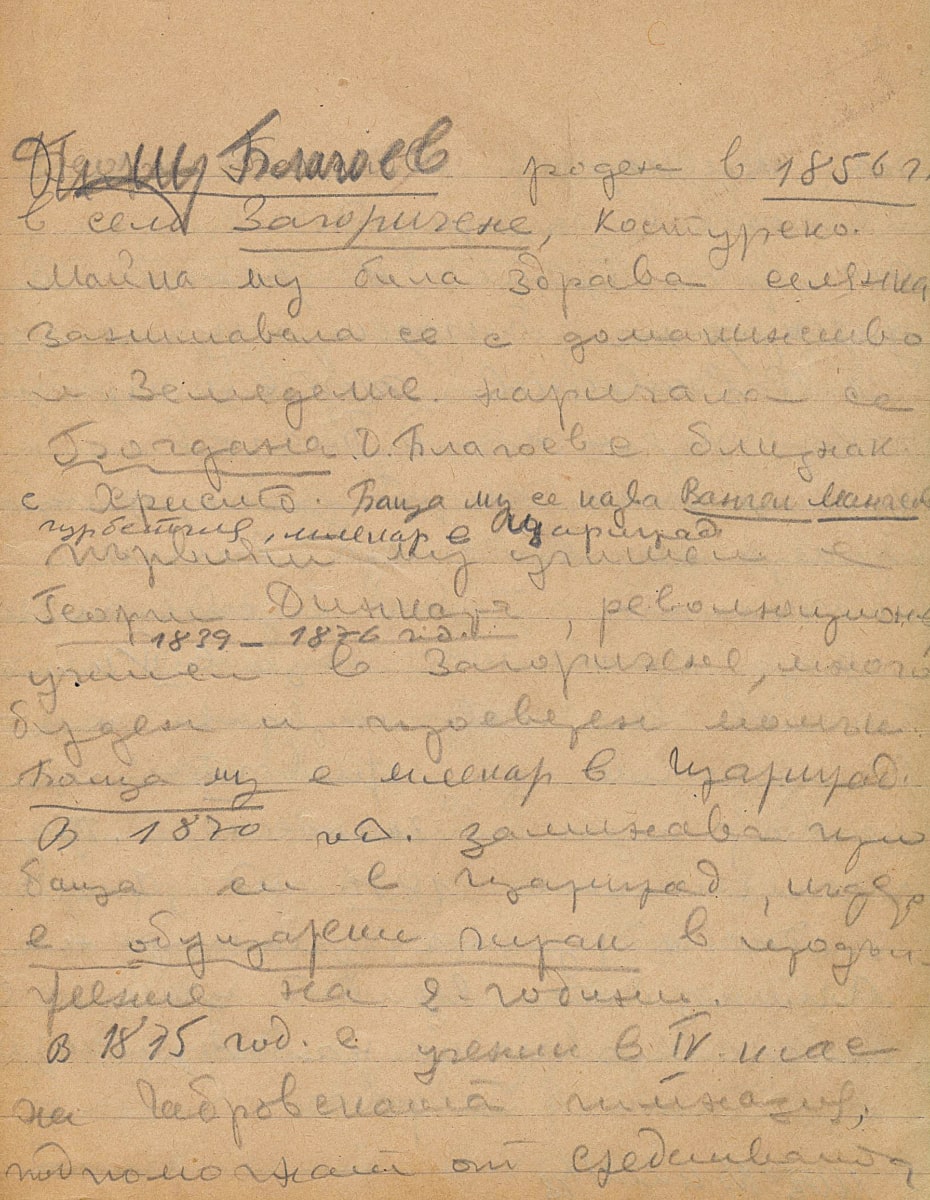 Димитър Благоев роден в 1856 г.
в село Загоричене, Костурско.
Майка му била здрава селянка
занимавала се с домакинство
и земеделие. наричала се
Богдана. Д. Благоев е близнак
с Христо. Баща му се казва Вангел Манчев
гурбетчия, млекар в Цариград
първият му учител е
Георги Динката, революционен
1839 – 1876 год.
учител в Загоричене, много
буден и просветен момък.
Баща му е млекар в Цариград.
В 1870 год. заминава при
баща си в Цариград, където
е обущарски чирак в продъл-
жение на 2 години.
В 1875 год. е ученик в IV клас
на Габровската гимназия,
подпомогнат от